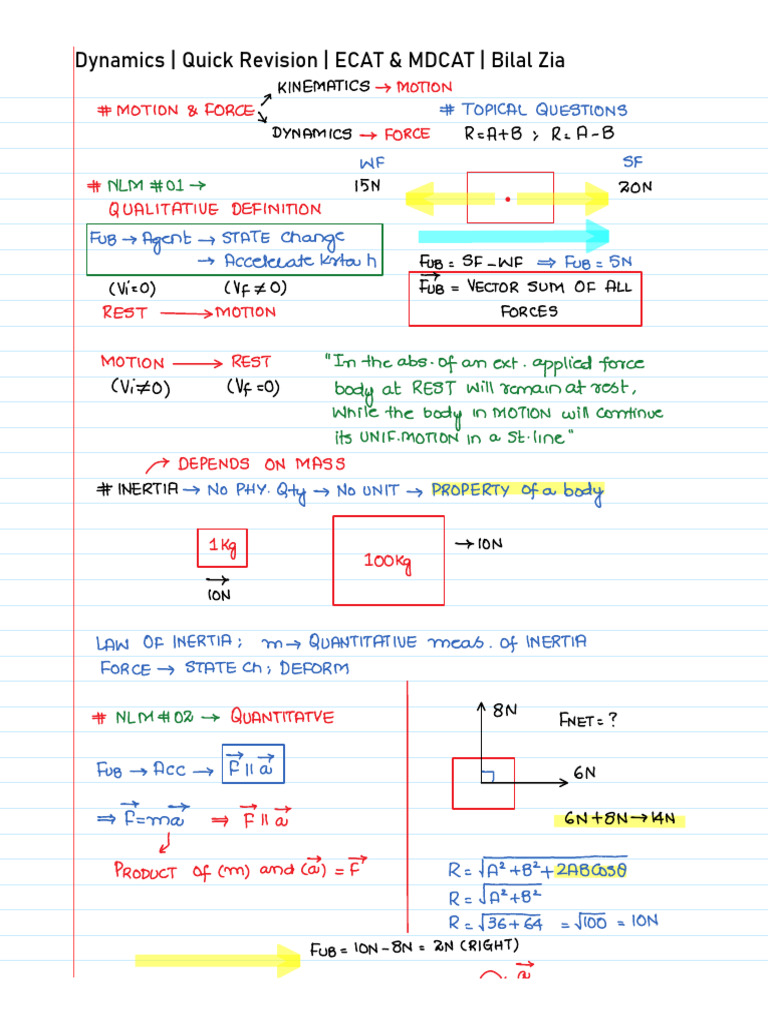 Dynamics | Quick Revision | ECAT & MDCAT | Bilal Zia
KINEMATICS → MOTION
# MOTION & FORCE
# TOPICAL QUESTIONS
DYNAMICS → FORCE
R=A+B ; R=A-B
WF
SF
# NLM #01 →
15N
20N
QUALITATIVE DEFINITION
FUB → Agent → STATE change
→ Accelerate Krta h
FUB = SF-WF ⇒ FUB = 5N
(Vi=0) (Vf≠0)
REST → MOTION
FUB = VECTOR SUM OF ALL
FORCES
MOTION → REST
(Vi≠0) (Vf=0)
"In the abs. of an ext. applied force
body at REST will remain at rest,
while the body in MOTION will continue
its UNIF. MOTION in a St. line"
DEPENDS ON MASS
# INERTIA → NO PHY. Qty → NO UNIT → PROPERTY of a body
1Kg
10N
100Kg
→ 10N
LAW OF INERTIA; m → QUANTITATIVE meas. of INERTIA
FORCE → STATE Ch; DEFORM
# NLM #02 → QUANTITATVE
8N
FNET = ?
FUB → ACC → F⃗ || a⃗
6N
⇒ F⃗=ma⃗ ⇒ F⃗ || a⃗
6N+8N→14N
PRODUCT OF (m) and (a⃗) = F⃗
R = √A²+B²+2ABCosθ
R = √A²+B²
R = √36+64 = √100 = 10N
FUB = 10N-8N = 2N (RIGHT)
a⃗